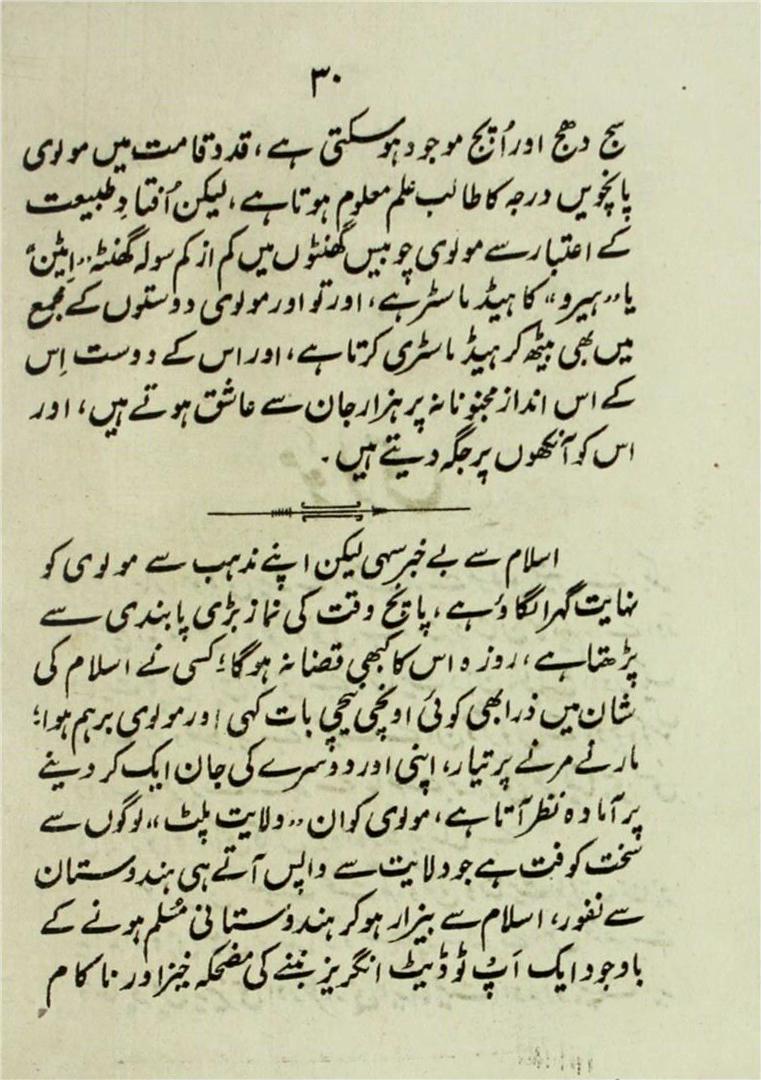 ۳۰
سج دھج اور اُپج موجود ہوسکتی ہے، قد و قامت میں مولوی
پانچویں درجہ کا طالب علم معلوم ہوتا ہے، لیکن اُفتاد طبیعت
کے اعتبار سے مولوی چوبیس گھنٹوں میں کم از کم سولہ گھنٹہ ”ایٹن“
یا ”ہیرو“ کا ہیڈ ماسٹر ہے، اور تو اور مولوی دوستوں کے مجمع
میں بھی بیٹھ کر ہیڈ ماسٹری کرتا ہے، اور اس کے دوست اِس
کے اس انداز مجنونانہ پر ہزار جان سے عاشق ہوتے ہیں، اور
اس کو آنکھوں پر جگہ دیتے ہیں۔
اسلام سے بے خبر سہی لیکن اپنے مذہب سے مولوی کو
نہایت گہرا لگاؤ ہے، پانچ وقت کی نماز بڑی پابندی سے
پڑھتا ہے، روزہ اس کا کبھی قضا نہ ہوگا؛ کسی نے اسلام کی
شان میں ذرا بھی کوئی اونچی نیچی بات کہی اور مولوی برہم ہوا؛
مارنے مرنے پر تیار، اپنی اور دوسرے کی جان ایک کر دینے
پر آمادہ نظر آتا ہے، مولوی کو ان ”ولایت پلٹ“ لوگوں سے
سخت کوفت ہے جو ولایت سے واپس آتے ہی ہندوستان
سے نفور، اسلام سے بیزار ہوکر ہندوستانی مُسلم ہونے کے
باوجود ایک اَپ ٹو ڈیٹ انگریز بننے کی مضحکہ خیز اور ناکام